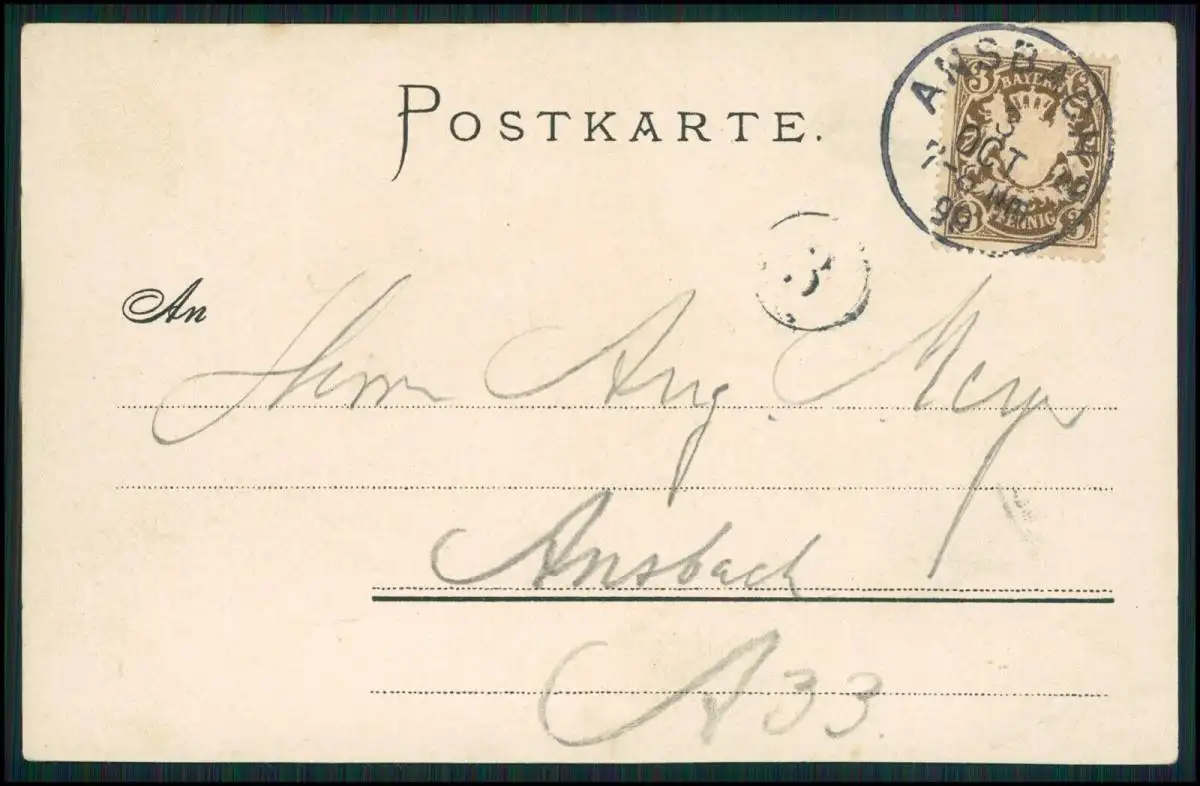 POSTKARTE.
ANSBACH
3
OCT
7-8 NM
99
3 BAYERN 3
3 PFENNIG 3
3
An
Herrn Aug. Meyer
Ansbach
A 33.